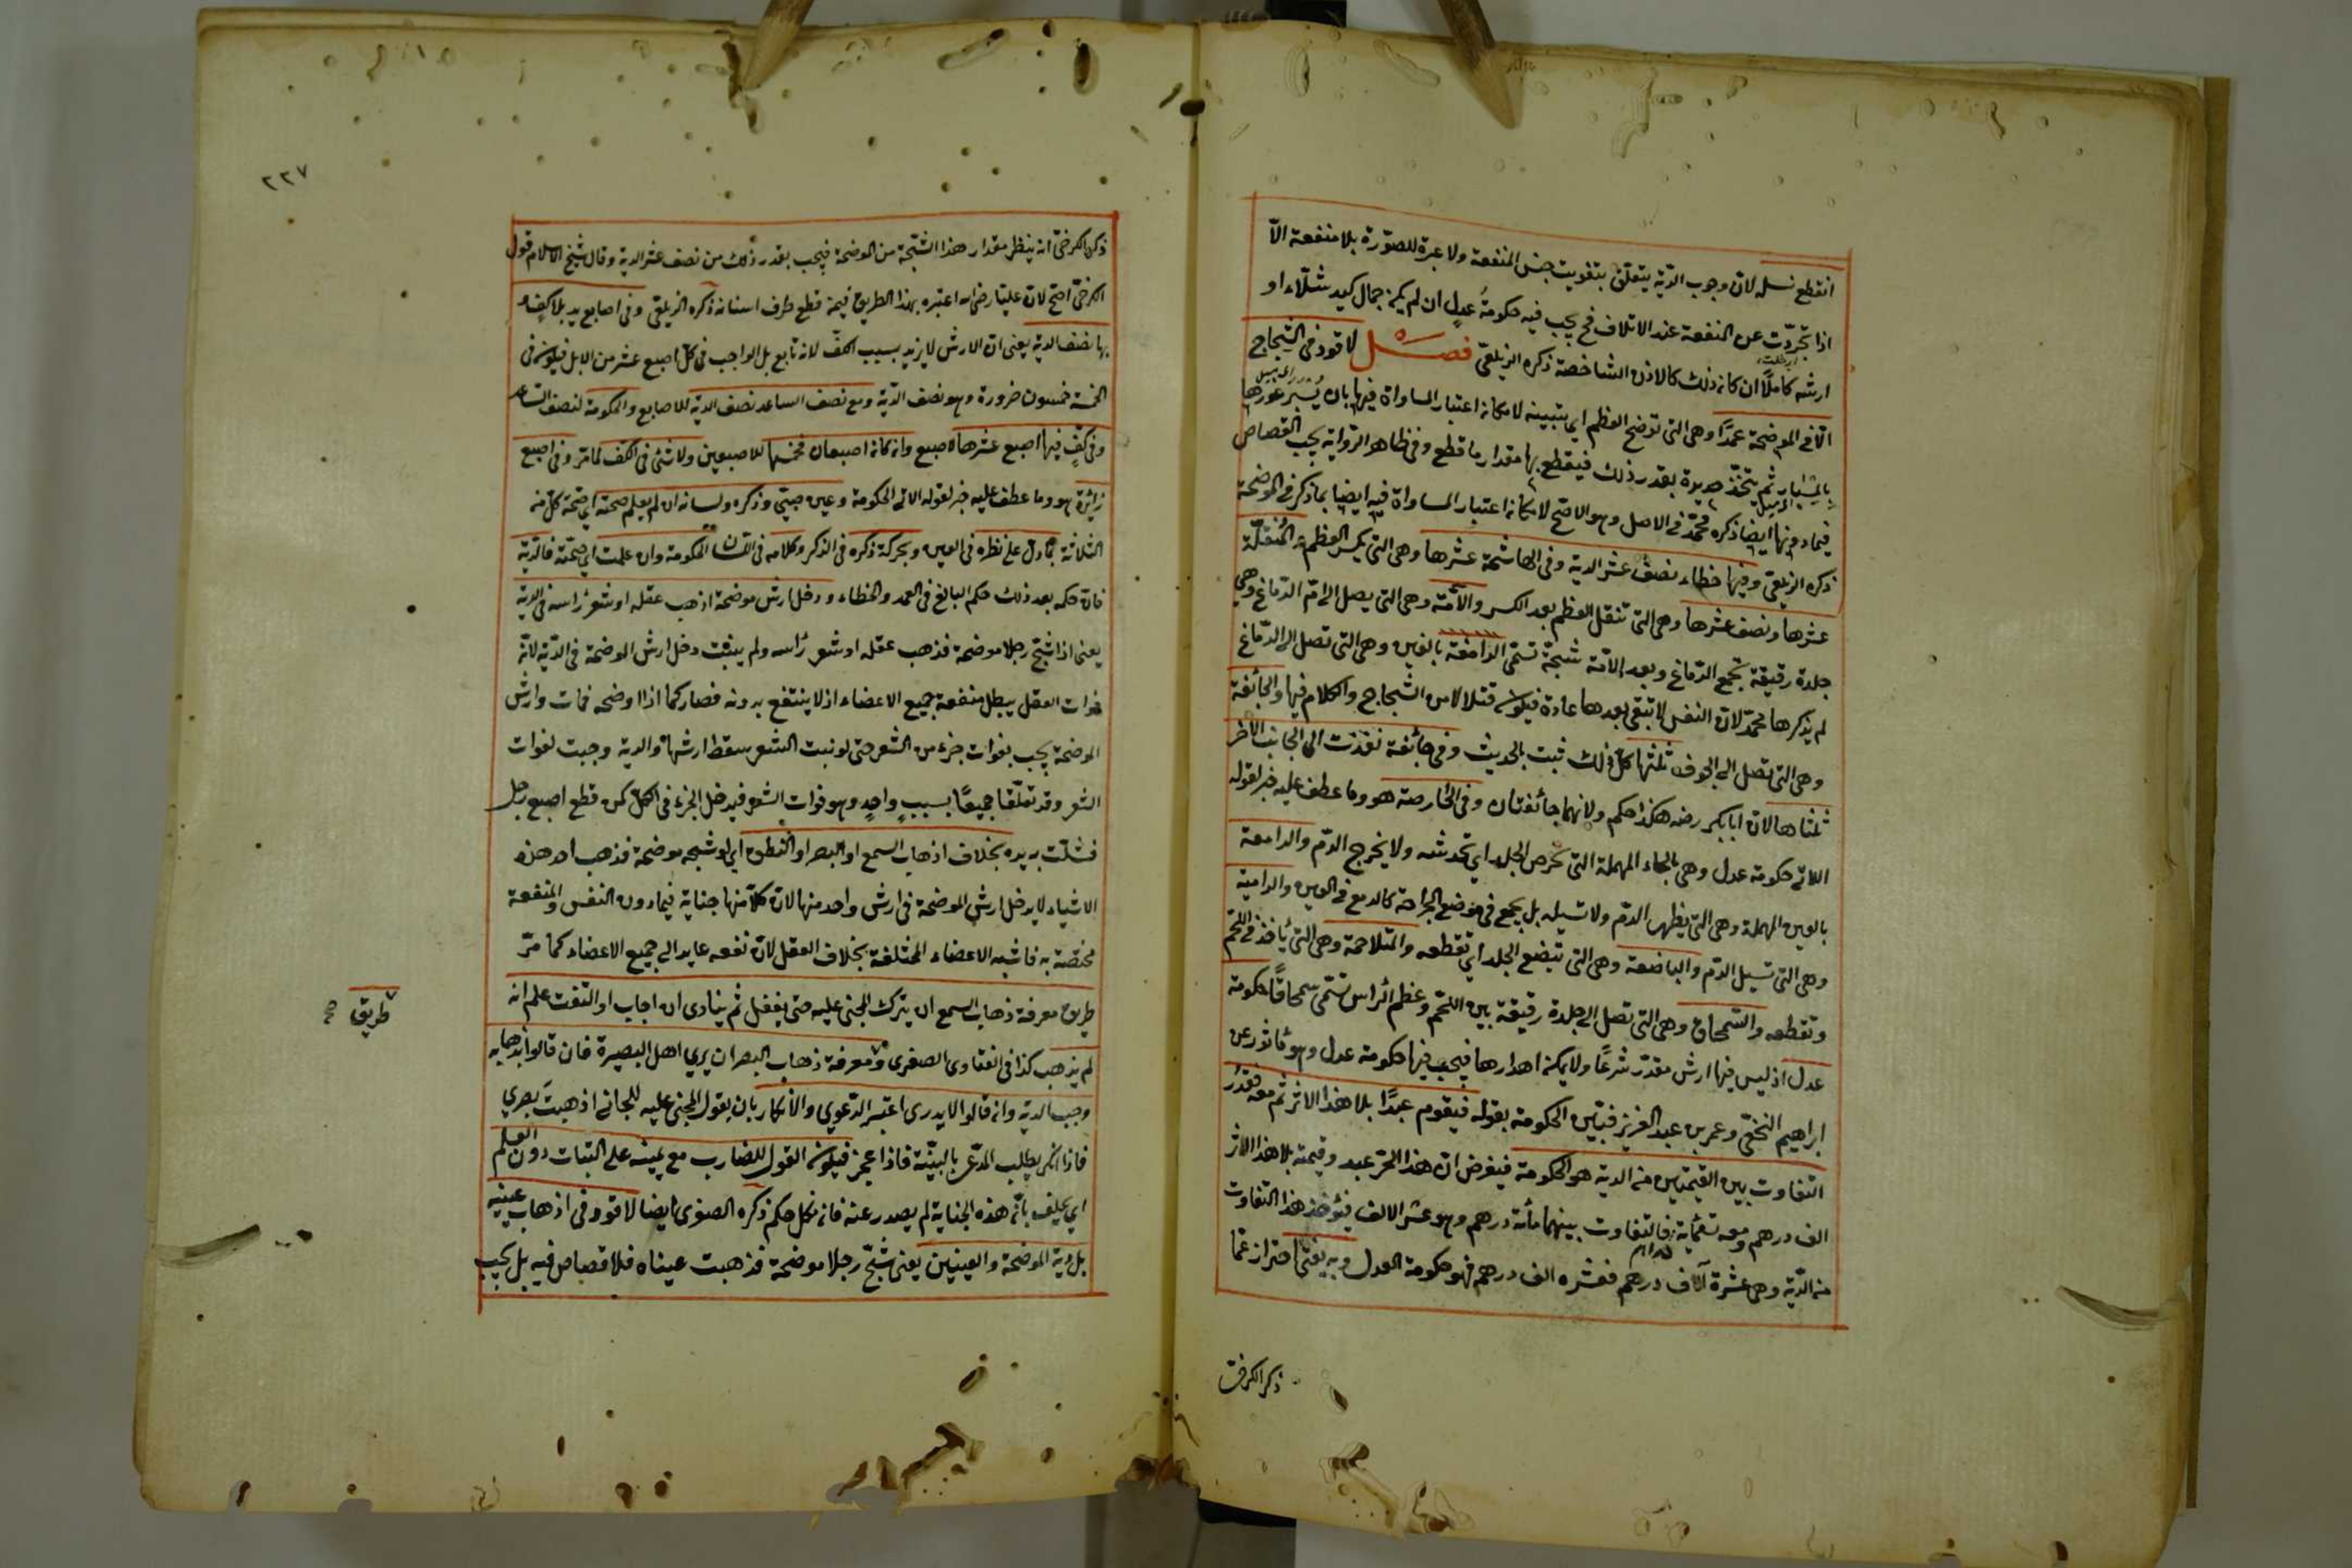 انقطع نسله لان وجوب الدية يتعلق بتفويت جنس المنفعة ولا عبرة للصورة بلا منفعة الا
اذا تجردت عن المنفعة عند الاتلاف فح يجب فيه حكومة عدل ان لم يكن جمال كيد شلاء او
ارشه كاملا ان كان ذلك كالاذن الشاخصة ذكره الزيلعى فصل لا قود فى الشجاج
الا فى الموضحة عمدا وهى التى توضح العظم اى تبينه لامكان اعتبار المساواة فيها بان يسبر غورها
بالمسبار ثم يتخذ حديدة بقدر ذلك فيقطع بها مقدار ما قطع وفى ظاهر الرواية يجب القصاص
فيما دونها ايضا ذكره محمد فى الاصل وهو الاصح لامكان اعتبار المساواة فيه ايضا بما ذكر فى الموضحة
ذكره الزيلعى وفيها خطاء نصف عشر الدية وفى الهاشمة عشرها وهى التى يكسر العظم والمنقلة
عشرها ونصف عشرها وهى التى تنقل العظم بعد الكسر والآمة وهى التى يصل الى ام الدماغ وهى
جلدة رقيقة تجمع الدماغ وبعد الآمة شجة تسمى الدامغة بالغين وهى التى تصل الى الدماغ
لم يذكرها محمد لان النفس لا تبقى بعدها عادة فيكون قتلا لا من الشجاج والكلام فيها والجائفة
وهى التى تصل الى الجوف ثلثها كل ذلك ثبت بالحديث وفى جائفة نفذت الى الجانب الآخر
ثلثاها لان ابا بكر رضه هكذا حكم ولانهما جائفتان وفى الخارصة هو وما عطف عليه خبر لقوله
الاتى حكومة عدل وهى بالحاء المهملة التى تحرص الجلد اى تخدشه ولا يخرج الدم والدامعة
بالعين المهملة وهى التى يظهر الدم ولا تسيله بل يجمع فى موضع الجراحة كالدمع فى العين والدامية
وهى التى تسيل الدم والباضعة وهى التى تبضع الجلد اى تقطعه والمتلاحمة وهى التى يأخذ فى اللحم
وتقطعه والسمحاق وهى التى تصل الى جلدة رقيقة بين اللحم وعظم الراس تسمى سمحاقا حكومة
عدل اذ ليس فيها ارش مقدر شرعا ولا يمكن اهدارها فيجب فيها حكومة عدل وهو مأثور عن
ابراهيم النخعى وعمر بن عبد العزيز فبين الحكومة بقوله فيقوم عبدا بلا هذا الاثر ثم معه فقدر
التفاوت بين القيمتين من الدية هو الحكومة فيفرض ان هذا الحر عبد وقيمته بلا هذا الاثر
الف درهم ومعه تسعمائة فالتفاوت بينهما مائة درهم وهو عشر الالف فيؤخذ هذا التفاوت
من الدية وهى عشرة آلاف درهم فعشره الف درهم فهو حكومة العدل وبه يفتى احتراز عما
ذكر الكرخى
٢٢٧
ذكره الكرخى انه ينظر مقدار هذا الشجة من الموضحة فيجب بقدر ذلك من نصف عشر الدية وقال شيخ الاسلام قول
الكرخى اصح لان عليا رضى الله اعتبره بهذا الطريق فيمن قطع طرف اسنانه ذكره الزيلعى وفى اصابع يد بلا كف و
بها نصف الدية يعنى ان الارش لا يزيد بسبب الكف لانه تابع بل الواجب فى كل اصبع عشر من الابل فيكون فى
الخمسة خمسون ضرورة وهو نصف الدية ومع نصف الساعد نصف الدية للاصابع والحكومة لنصف الساعد
وفى كف فيها اصبع عشرها لاصبع وان كان اصبعان فخمسها للاصبعين ولا شئ فى الكف لما مر وفى اصبع
زائدة هو وما عطف عليه خبر لقوله الاتى الحكومة وعين صبى وذكره ولسانه ان لم يعلم صحته اى صحة كل من
الثلاثة بما دل على نظره فى العين وبحركة ذكره فى الذكر وكلامه فى اللسان الحكومة وان علمت اى صحته فالدية
فان حكمه بعد ذلك حكم البالغ فى العمد والخطاء ودخل ارش موضحة اذهب عقله او شعر راسه فى الدية
يعنى اذا شج رجلا موضحة فذهب عقله او شعر راسه ولم ينبت دخل ارش الموضحة فى الدية لان
فوات العقل يبطل منفعة جميع الاعضاء اذ لا ينتفع بدونه فصار كما اذا اوضحه فمات وارش
الموضحة يجب بفوات جزء من الشعر حتى لو نبت الشعر سقط ارشها والدية وجبت لفوات
الشعر وقد تعلقا جميعا بسبب واحد وهو فوات الشعر فيدخل الجزء فى الكل كمن قطع اصبع رجل
فشلت به يده بخلاف اذهاب السمع او البصر او النطق اى لو شجه موضحة فذهب احد هذه
الاشياء لا يدخل ارش الموضحة فى ارش واحد منها لان كلا منها جناية فيما دون النفس والمنفعة
مختصة به فاشبه الاعضاء المختلفة بخلاف العقل لان نفعه عايد الى جميع الاعضاء كما مر
طريق معرفة ذهاب السمع ان يترك المجنى عليه حتى يغفل ثم ينادى ان اجاب او التفت علم انه
لم يذهب كذا فى الفتاوى الصغرى ومعرفة ذهاب البصر ان يرى اهل البصيرة فان قالوا بذهابه
وجب الدية وان قالوا لا يدرى اعتبر الدعوى والانكار بان يقول المجنى عليه للجانى اذهبت بصرى
فاذا انكر يطلب المدعى بالبينة فاذا عجز فيكون القول للضارب مع يمينه على البتات دون العلم
اى يحلف بان هذه الجناية لم يصدر عنه فان نكل حكم ذكره الصغرى ايضا لا قود فى اذهاب عينيه
بل دية الموضحة والعينين يعنى شج رجلا موضحة فذهبت عيناه فلا قصاص فيه بل يجب
طريق
صح